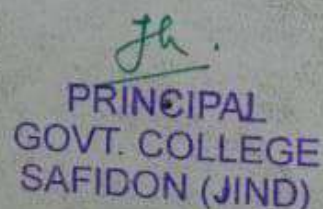 PRINCIPAL
GOVT. COLLEGE
SAFIDON (JIND)